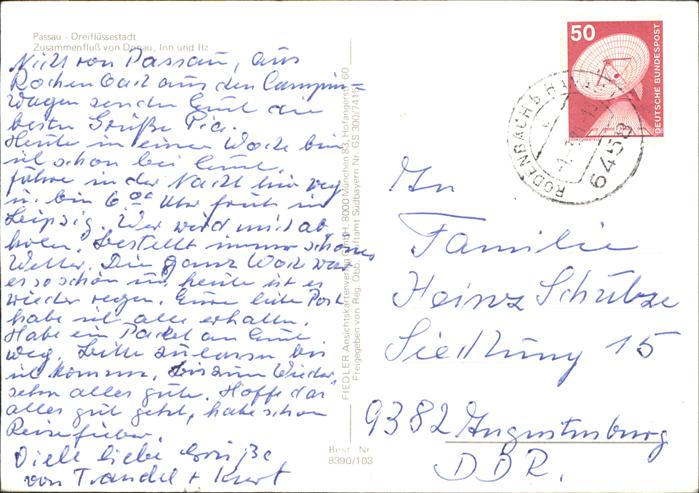 Passau - Dreiflüssestadt
Zusammenfluß von Donau, Inn und Ilz
Nicht von Passau, aus
Rodenbach aus den Camping-
wagen senden Euch die
besten Grüße Pia.
Heute in einer Woche bin
ich schon bei Euch.
fahre in der Nacht hier weg
u. bin 6.00 Uhr früh in
Leipzig. Wer wird mich ab
holen. bestellt immer schönes
Wetter. Die ganze Woche war
es so schön u. heute ist es
wieder regen. Eure liebe Post
habe ich alle erhalten.
Habe ein Packet an Euch
weg. Bitte zulassen bis
ich komme. Bis zum Wieder-
sehn alles gute. Hoffe das
alles gut geht, habe schon
Reisefieber.
Viele liebe Grüße
von Traudel + Kurt
FIEDLER Ansichtskartenverlag GmbH, 8000 München 83, Hofangerstr. 60
Freigegeben von Reg. Obb. Luftamt Südbayern Nr. GS 300/7415
Best. Nr.
8390/103
50
DEUTSCHE BUNDESPOST
RODENBACH B HANAU
6458
An
Familie
Heinz Schulze
Siedlung 15
9382 Augustusburg
DDR.